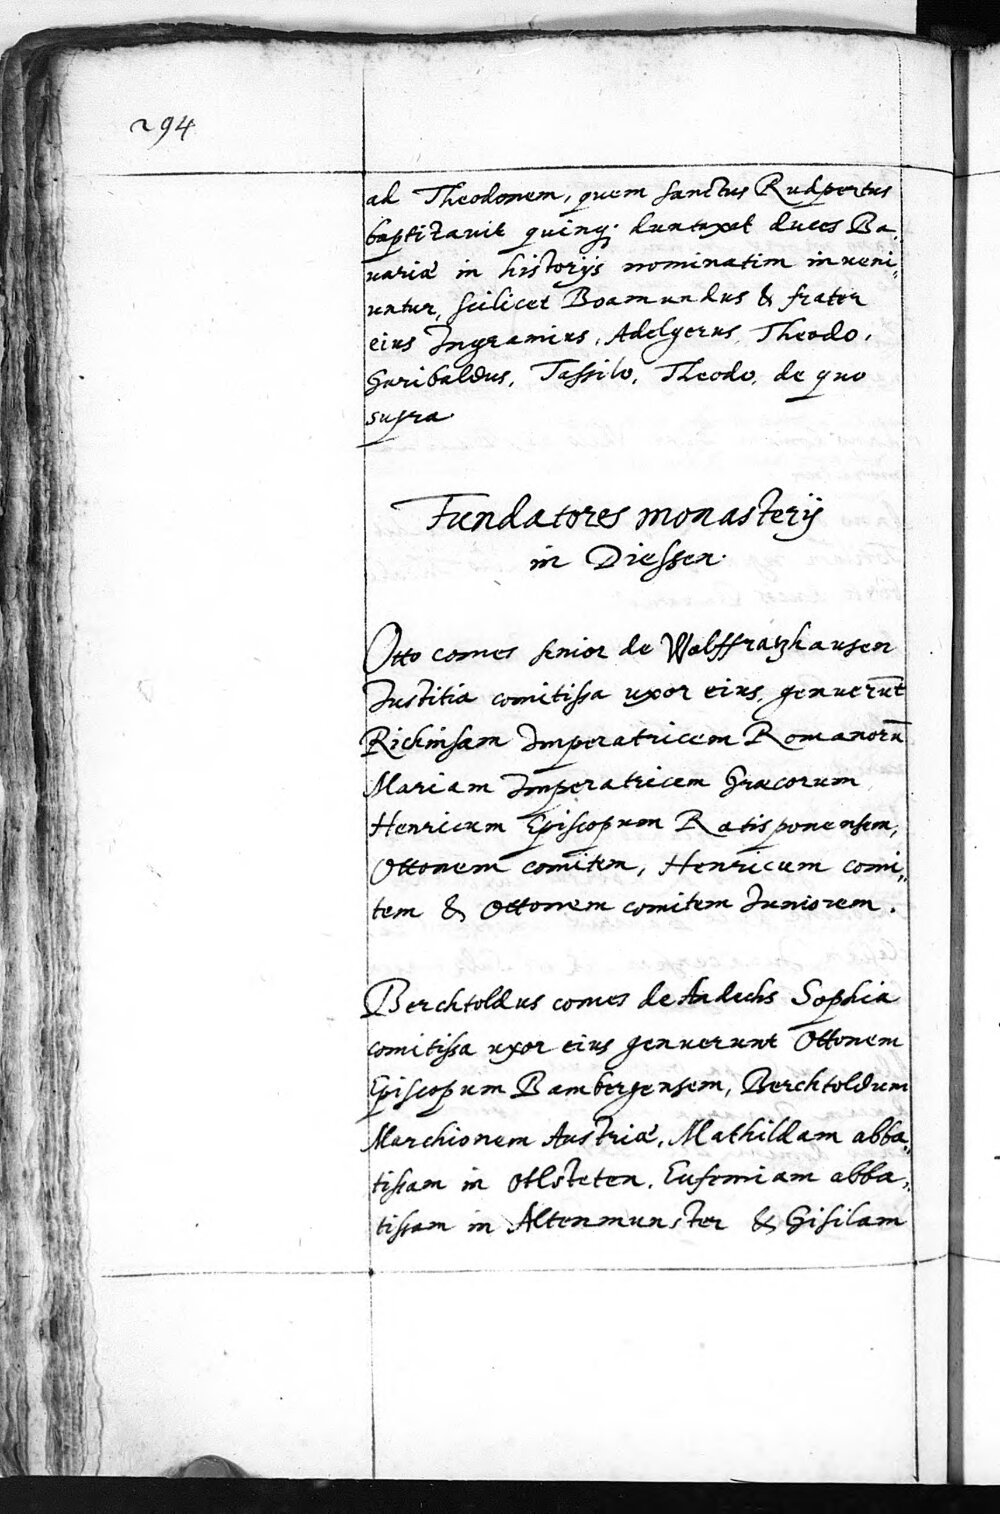 294
ad Theodonem, quem sanctus Rudpertus
baptizauit quinq; duntaxat duces Ba„
uariæ in historijs nominatim inueni„
untur, scilicet Boamundus & frater
eius Ingramius, Adelgerus, Theodo,
Garibaldus, Tassilo, Theodo, de quo
supra
Fundatores monasterij
in Diessen.
Otto comes senior de Wolffratzhausen
Iustitia comitissa uxor eius, genuerūt
Richinsam Imperatricem Romanorū
Mariam Imperatricem Græcorum
Henricum Episcopum Ratisponensem,
Ottonem comitem, Henricum comi„
tem & Ottonem comitem Iuniorem.
Berchtoldus comes de Andechs Sophia
comitissa uxor eius genuerunt Ottonem
Episcopum Bambergensem, Berchtoldum
Marchionem Austriæ, Mathildam abba„
tissam in Otlsteten, Eufemiam abba„
tissam in Altenmunster & Gisilam